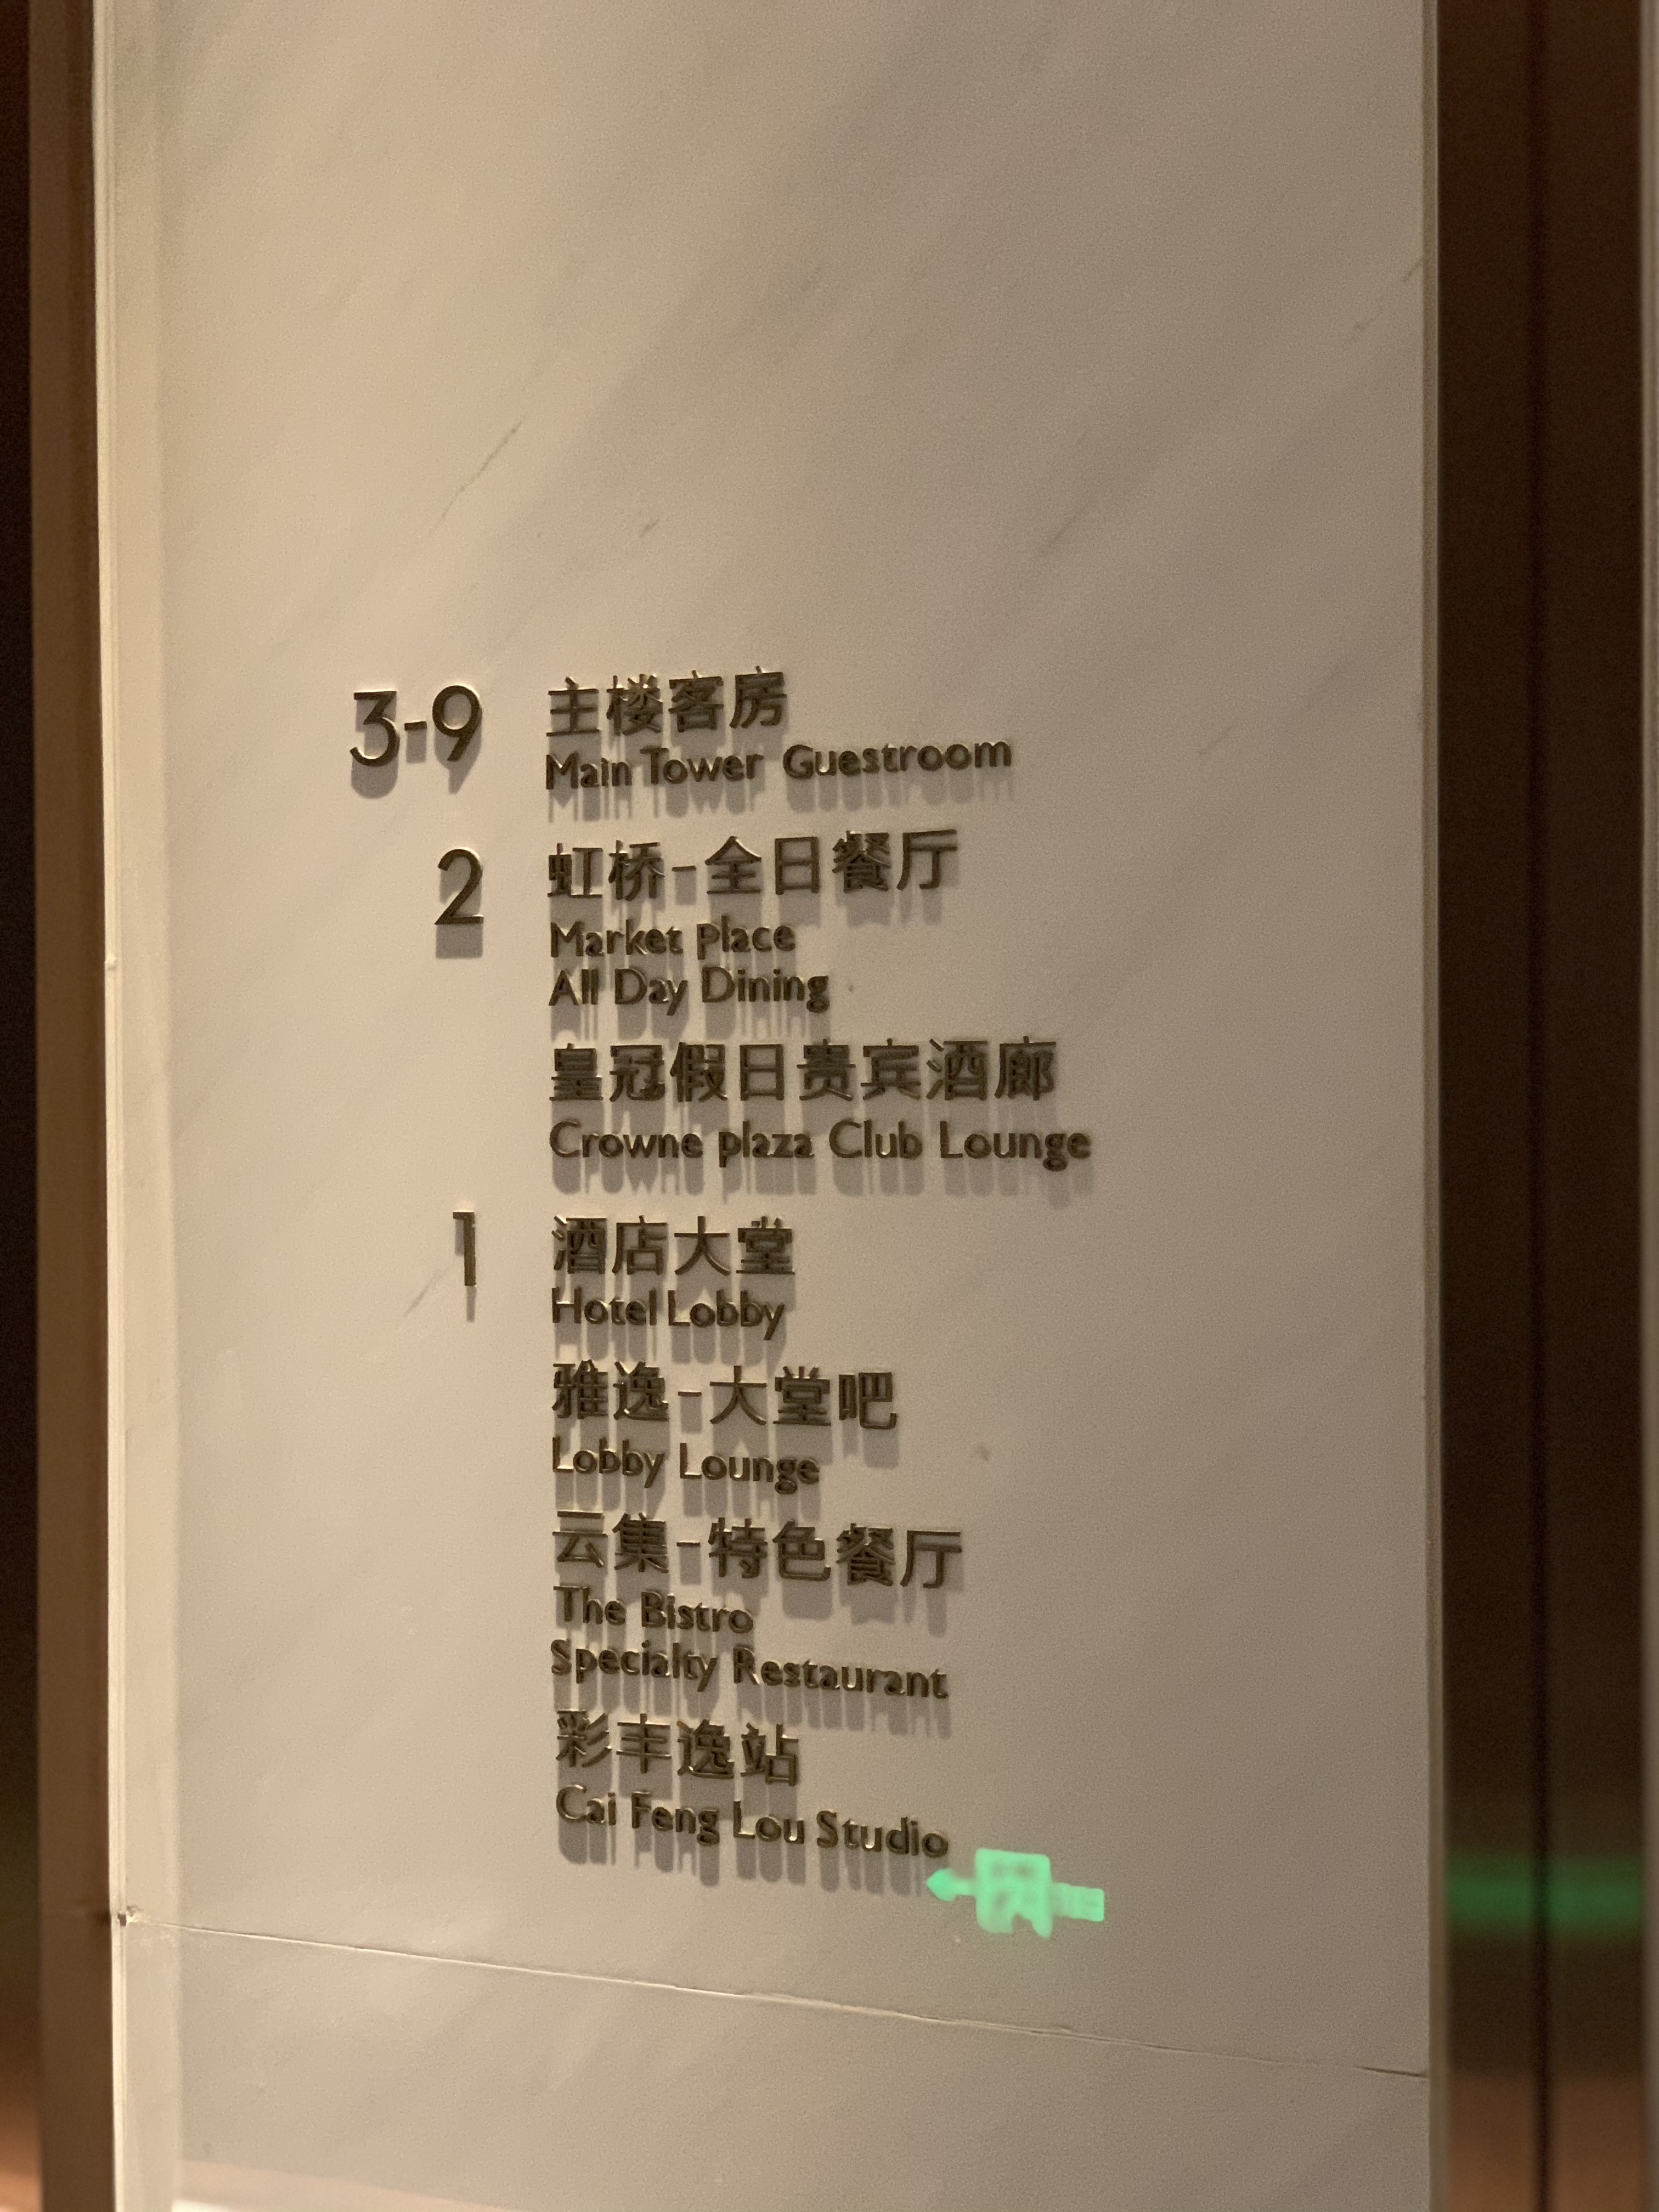 3-9 主楼客房
Main Tower Guestroom
2 虹桥-全日餐厅
Market Place
All Day Dining
皇冠假日贵宾酒廊
Crowne plaza Club Lounge
1 酒店大堂
Hotel Lobby
雅逸-大堂吧
Lobby Lounge
云集-特色餐厅
The Bistro
Specialty Restaurant
彩丰逸站
Cai Feng Lou Studio